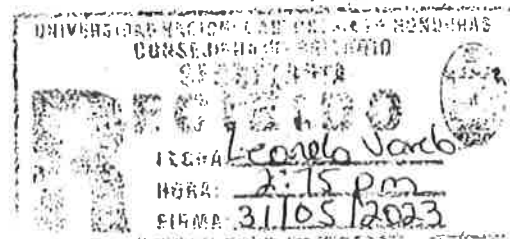 UNIVERSIDAD NACIONAL AUTONOMA DE HONDURAS
SECRETARIA
Recibido
FECHA: Leonela Varela
HORA: 2:15 pm
FIRMA: 31/05/2023